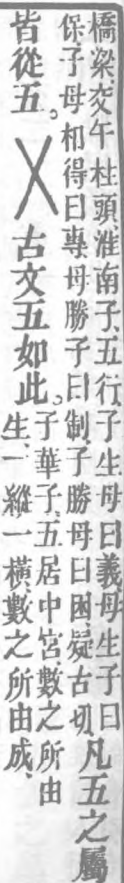 橋梁、交午柱頭、淮南子、五行、子生母曰義、母生子曰
保、子母相得曰專、母勝子曰制、子勝母曰困、疑古切
凡五之屬
皆從五。㐅古文五如此。
子華子、五居中宮、數之所由
生、一縱一橫、數之所由成、